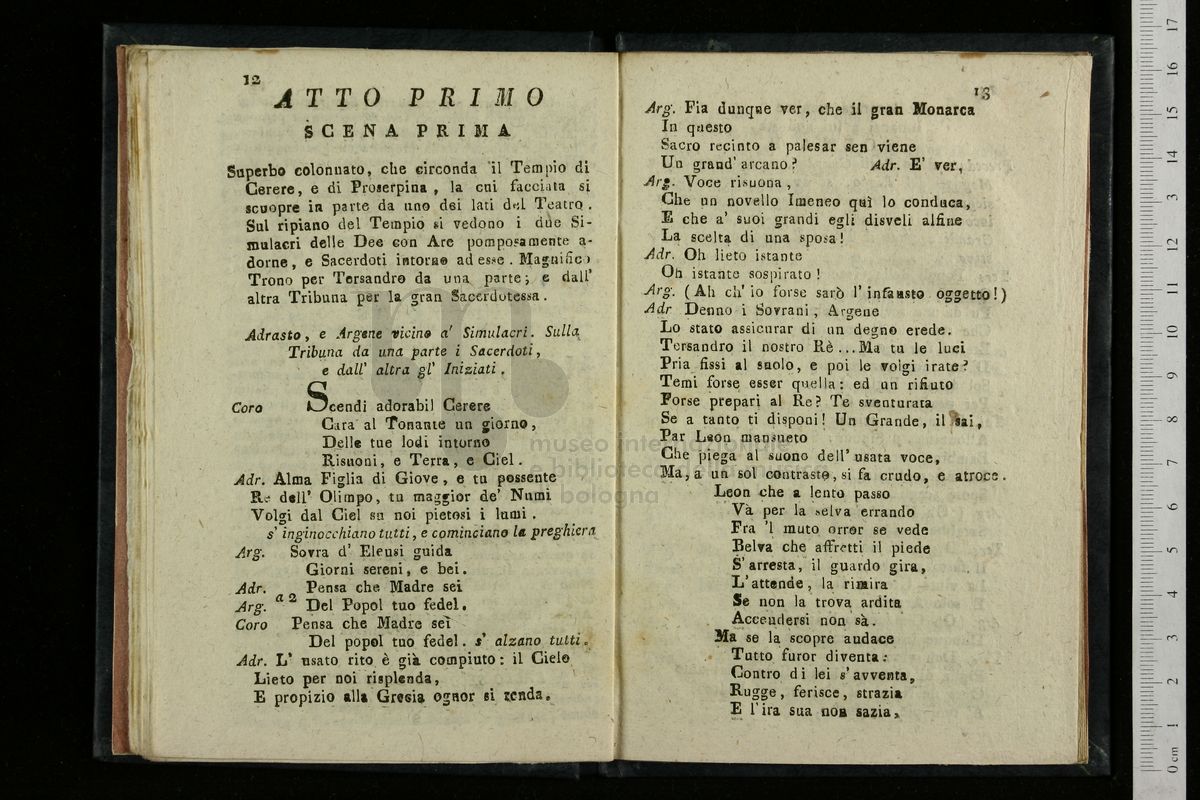 12
ATTO PRIMO
SCENA PRIMA
Superbo colonnato, che circonda il Tempio di
Cerere, e di Proserpina, la cui facciata si
scuopre in parte da uno dei lati del Teatro.
Sul ripiano del Tempio si vedono i due Si-
mulacri delle Dee con Are pomposamente a-
dorne, e Sacerdoti intorno ad esse. Magnifico
Trono per Tersandro da una parte; e dall'
altra Tribuna per la gran Sacerdotessa.
Adrasto, e Argene vicino a' Simulacri. Sulla
Tribuna da una parte i Sacerdoti,
e dall' altra gl' Iniziati.
Coro Scendi adorabil Cerere
Cara al Tonante un giorno,
Delle tue lodi intorno
Risuoni, e Terra, e Ciel.
Adr. Alma Figlia di Giove, e tu possente
Re dell' Olimpo, tu maggior de' Numi
Volgi dal Ciel su noi pietosi i lumi.
s' inginocchiano tutti, e cominciano la preghiera
Arg. Sovra d' Eleusi guida
Giorni sereni, e bei.
Adr. Pensa che Madre sei
Arg. a 2 Del Popol tuo fedel.
Coro Pensa che Madre sei
Del popol tuo fedel. s' alzano tutti.
Adr. L' usato rito è già compiuto: il Cielo
Lieto per noi risplenda,
E propizio alla Grecia ognor si renda.
13
Arg. Fia dunque ver, che il gran Monarca
In questo
Sacro recinto a palesar sen viene
Un grand' arcano? Adr. E' ver,
Arg. Voce risuona,
Che un novello Imeneo quì lo conduca,
E che a' suoi grandi egli disveli alfine
La scelta di una sposa!
Adr. Oh lieto istante
Oh istante sospirato!
Arg. (Ah ch' io forse sarò l' infausto oggetto!)
Adr Denno i Sovrani, Argene
Lo stato assicurar di un degno erede.
Tersandro il nostro Rè... Ma tu le luci
Pria fissi al suolo, e poi le volgi irate?
Temi forse esser quella: ed un rifiuto
Forse prepari al Re? Te sventurata
Se a tanto ti disponi! Un Grande, il sai,
Par Leon mansueto
Che piega al suono dell' usata voce,
Ma, a un sol contrasto, si fa crudo, e atroce.
Leon che a lento passo
Và per la selva errando
Fra 'l muto orror se vede
Belva che affretti il piede
S' arresta, il guardo gira,
L' attende, la rimira
Se non la trova ardita
Accendersi non sà.
Ma se la scopre audace
Tutto furor diventa:
Contro di lei s' avventa,
Rugge, ferisce, strazia
E l' ira sua non sazia,
museo internazionale
e biblioteca della musica
bologna
0 cm 1 2 3 4 5 6 7 8 9 10 11 12 13 14 15 16 17